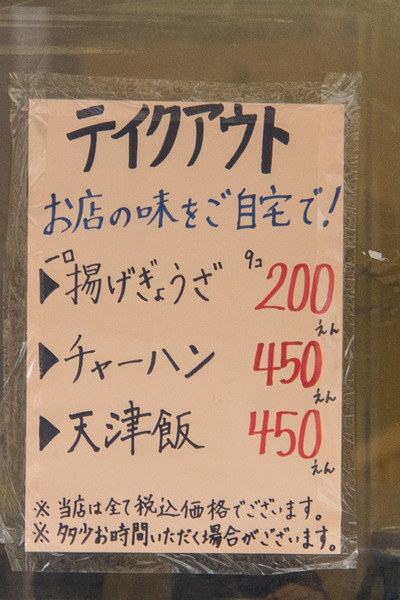 テイクアウト
お店の味をご自宅で！
▶一口揚げぎょうざ 9コ 200えん
▶チャーハン 450えん
▶天津飯 450えん
※当店は全て税込価格でございます。
※多少お時間いただく場合がございます。